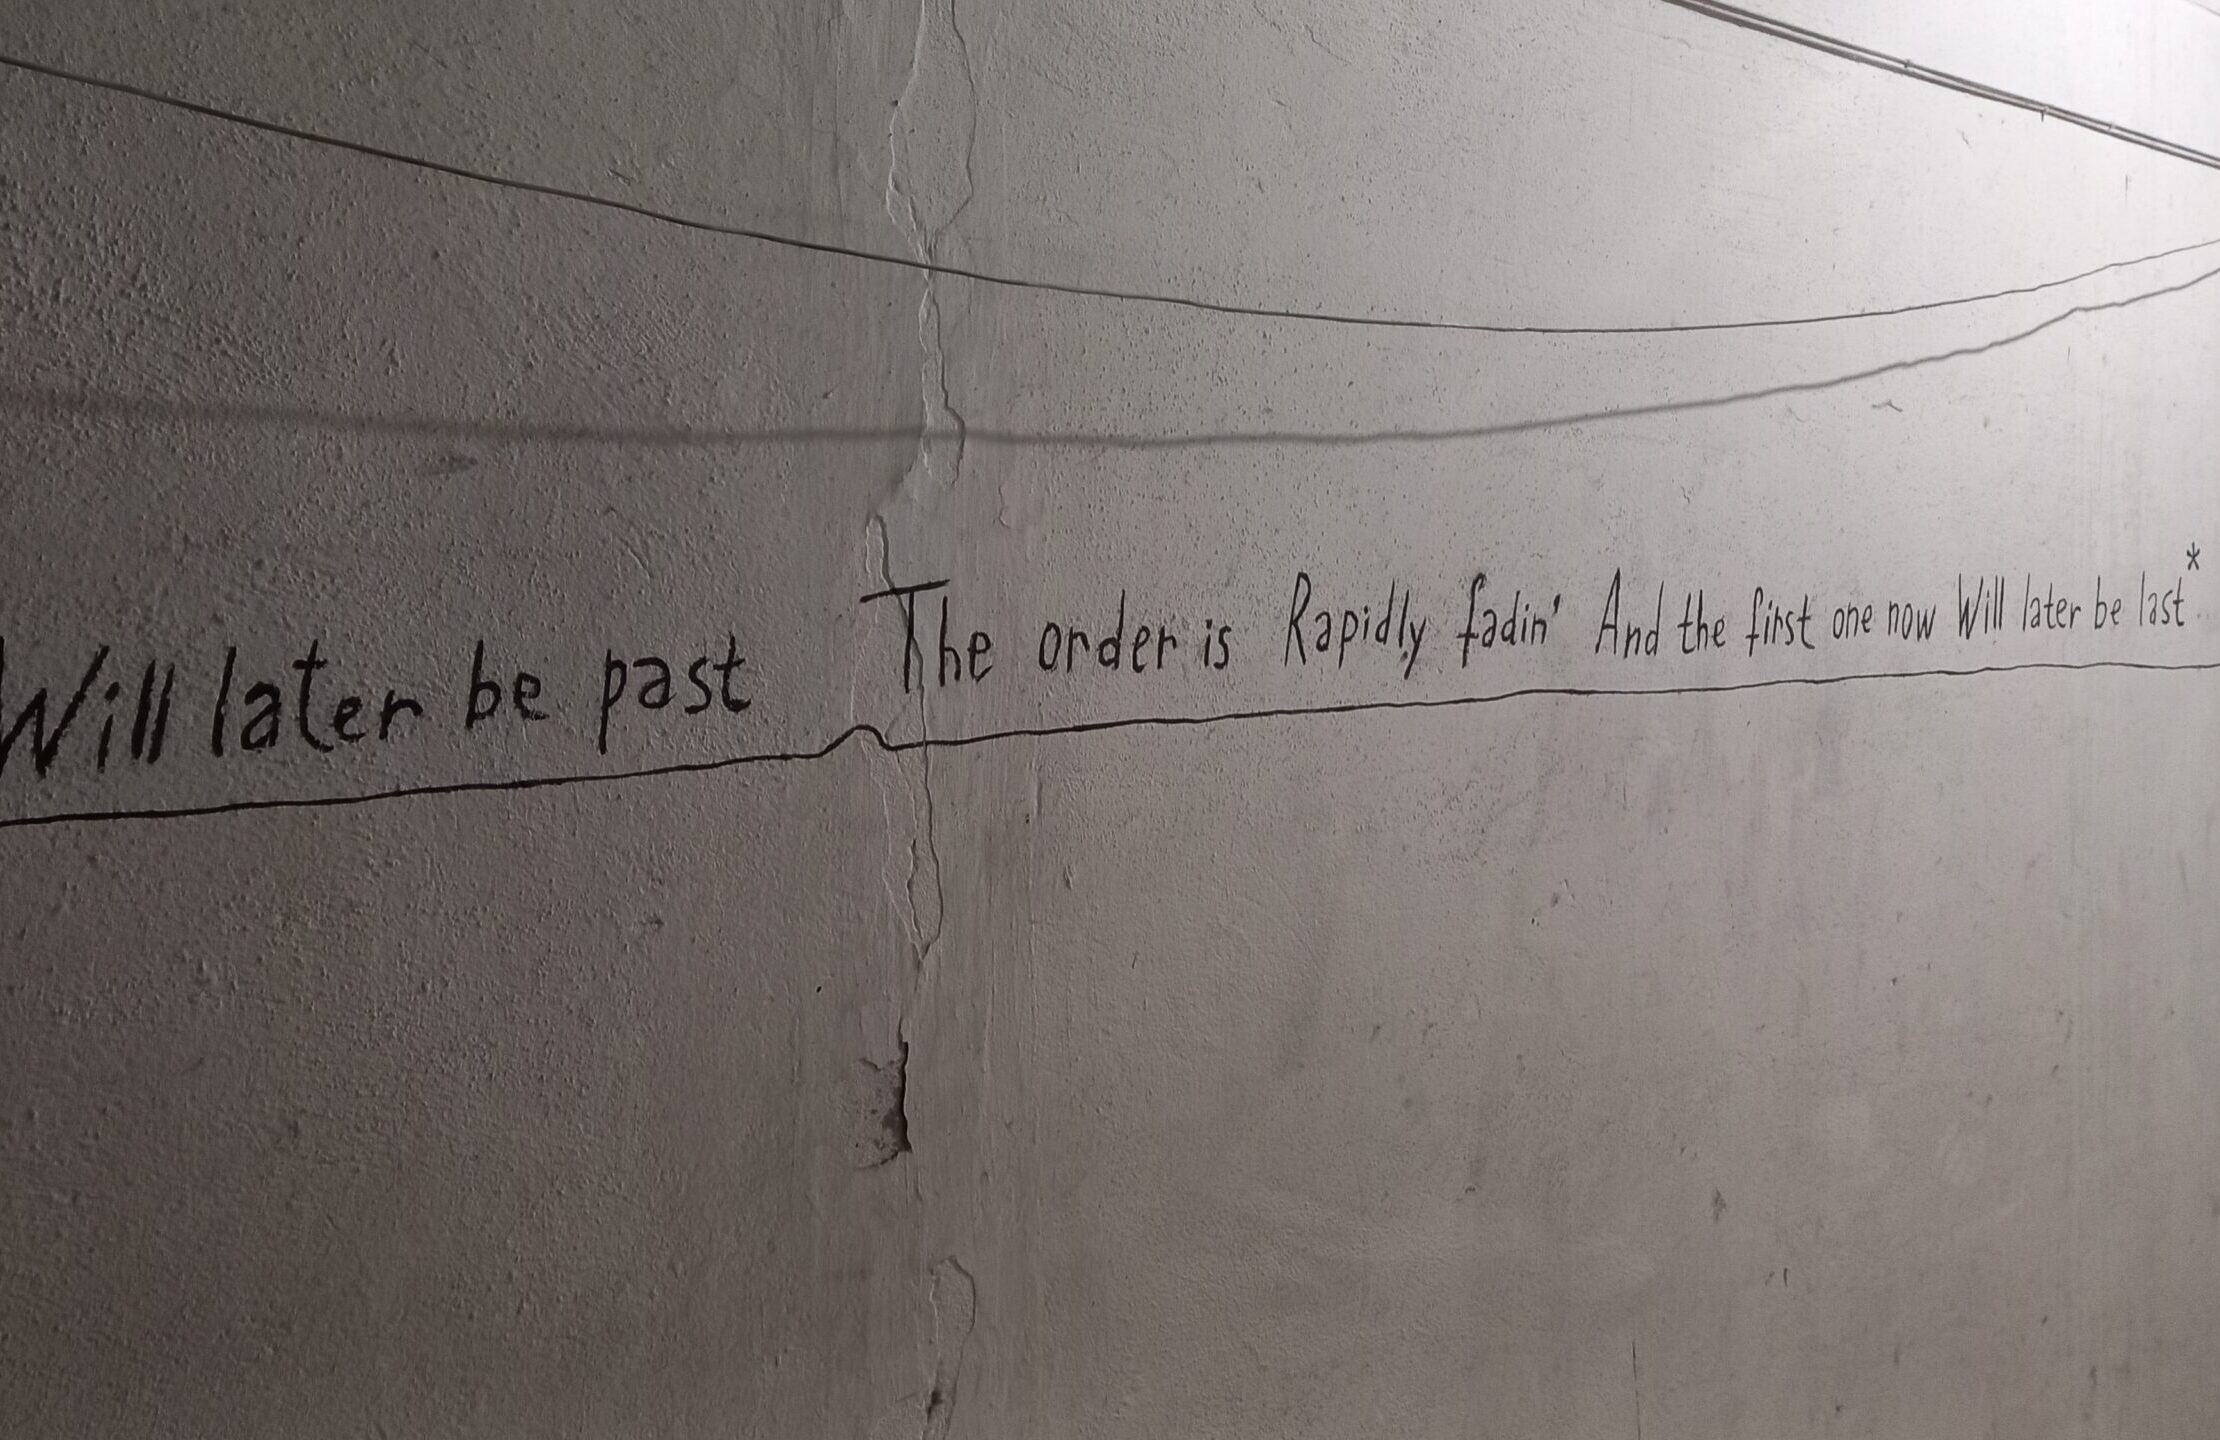 Will later be past The order is Rapidly fadin' And the first one now Will later be last*